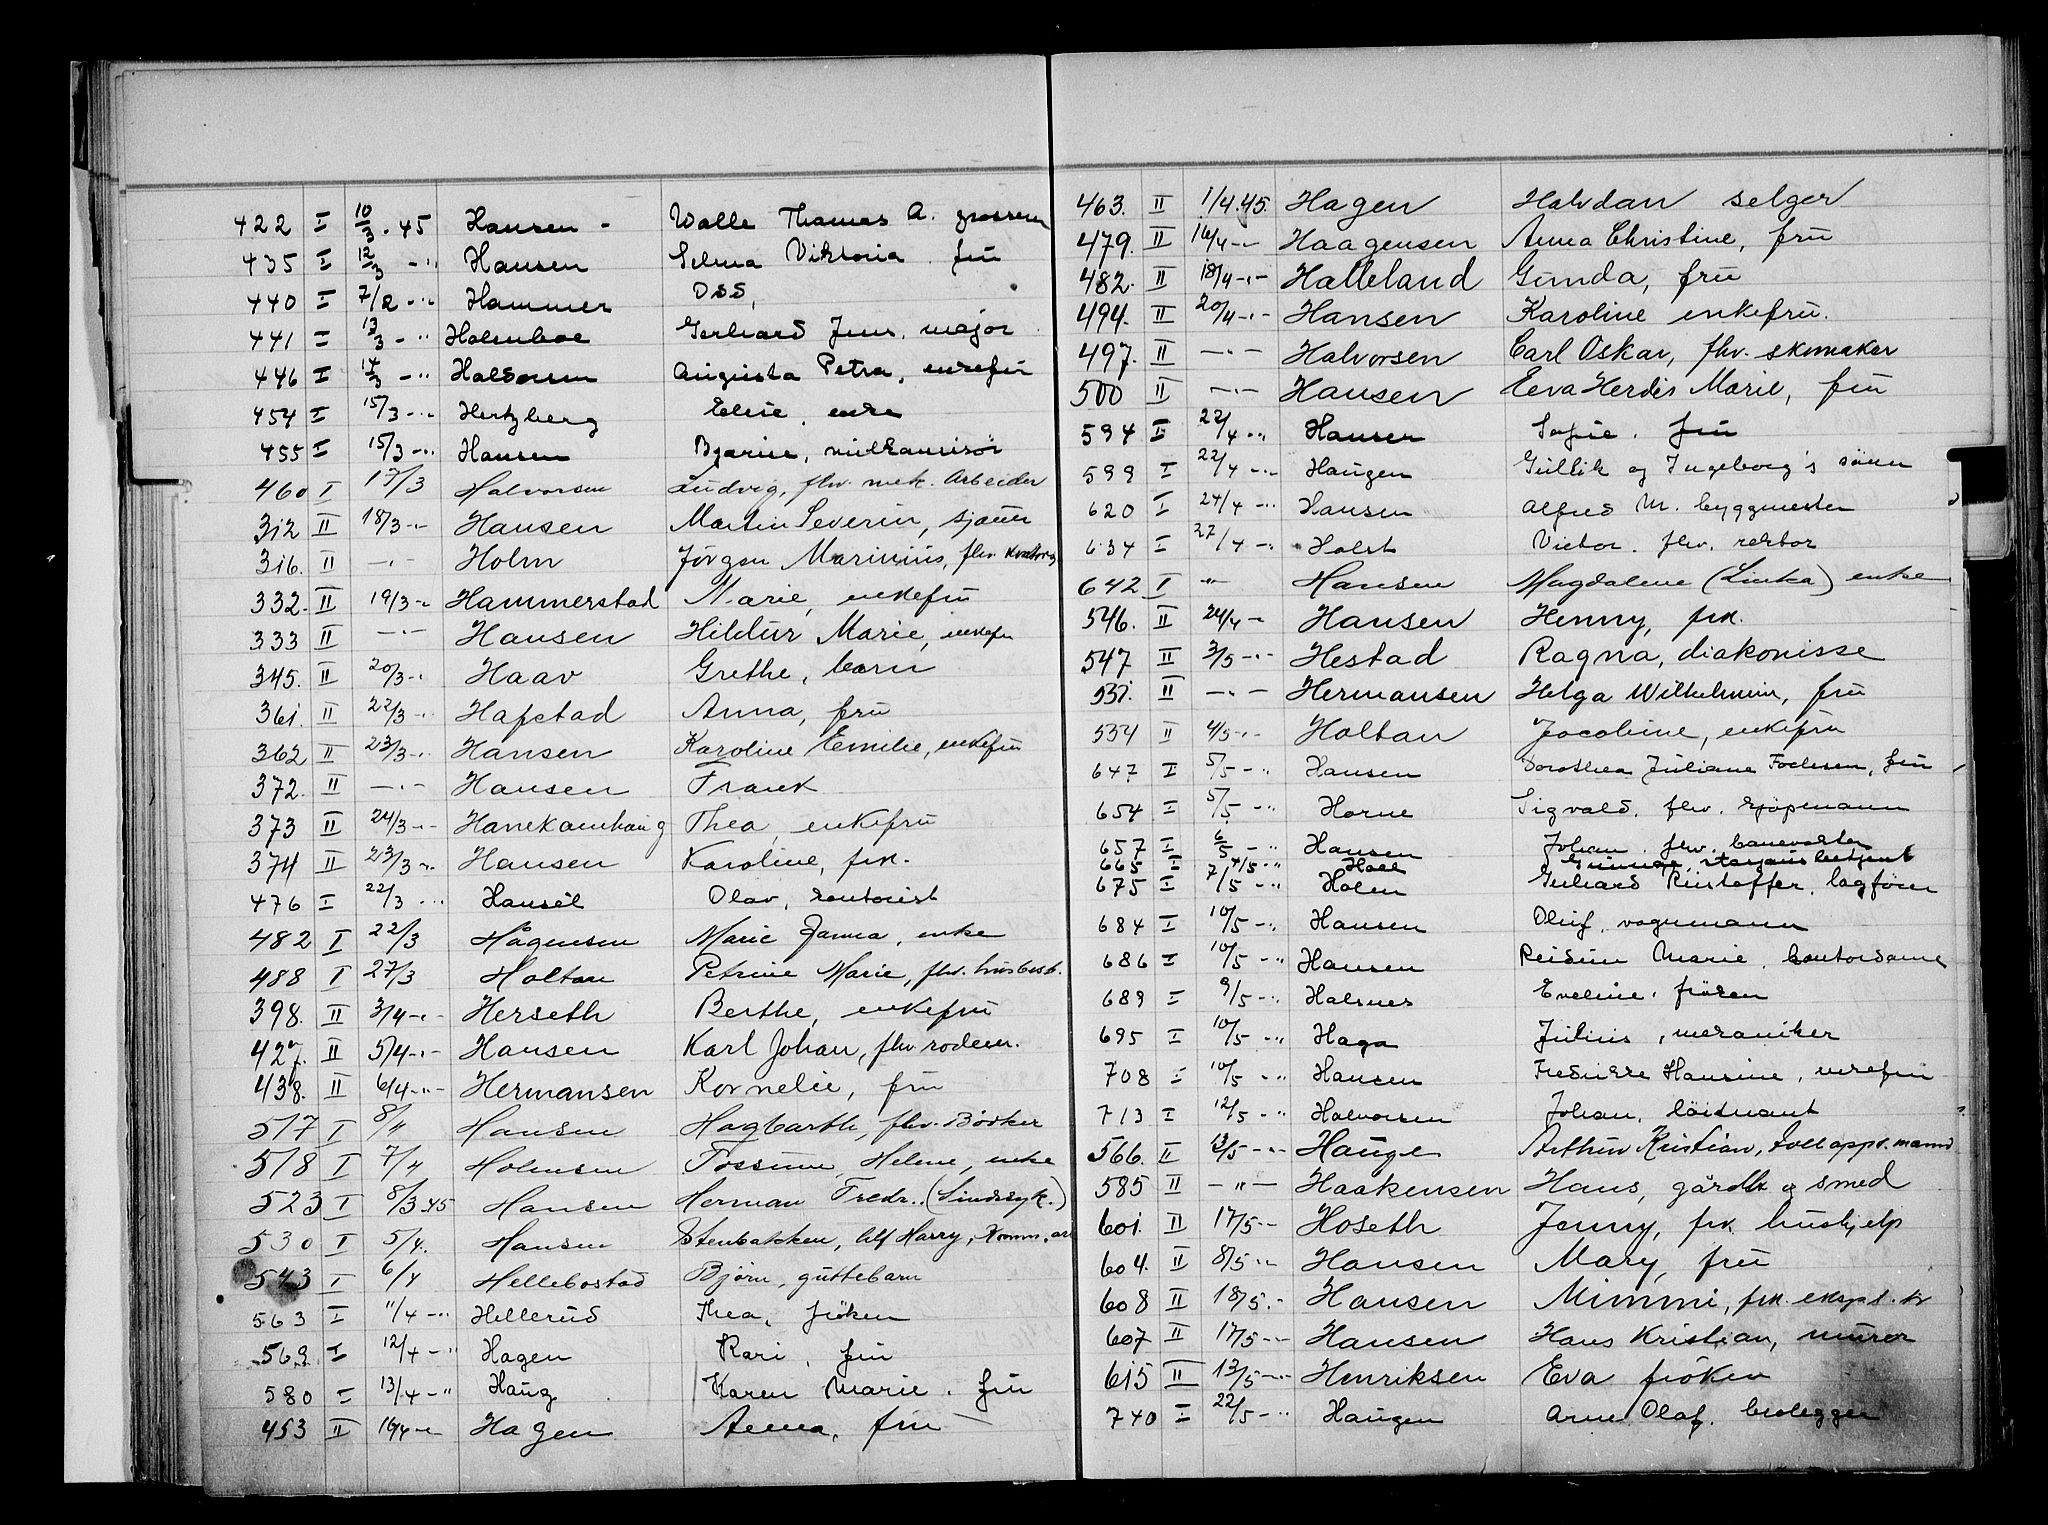 422 I 10/3 - 45 Hansen - Walle Thomas A. grosserer
435 I 12/3 -"- Hansen Selma Viktoria. fru
440 I 7/2 -"- Hammer Oss,
441 I 13/3 -"- Holmboe Gerhard Jens. major
446 I 14/3 -"- Halvorsen Augusta Petra, enkefru
454 I 15/3 -"- Hertzberg Elise. enke
455 I 15/3 -"- Hansen Bjarne,
460 I 17/3 Halvorsen Ludvig, fhv. mek. Arbeider
312 II 18/3 -"- Hansen Martin Severin, sjauer
316. II -"- Holm Jörgen Marinius, fhv.
332. II 19/3 -"- Hammerstad Marie, enkefru
333 II -"- Hansen Hildur Marie, enkefr
345. II 20/3 -"- Haav Grethe, barn
361. II 22/3 -"- Hafstad Anna, fru
362 II 23/3 -"- Hansen Karoline Emilie, enkefru
372. II -"- Hansen Frank
373 II 24/3 -"- Hanekamhaug Thea, enkefru
374 II 23/3 -"- Hansen Karoline, frk.
476 I 22/3 -"- Hansèl Olav, kontorist
482 I 22/3 Hågensen Marie Janna, enke
488 I 27/3 Holtan Petrine Marie, fhv. husbest.
398. II 3/4 -"- Herseth Berthe, enkefru
427. II 5/4 -"- Hansen Karl Johan, fhv rodem.
438. II 6/4 -"- Hermansen Kornelie, fru
517 I 8/4 Hansen Hagbarth, fhv. Bödker
518 I 7/4 Holmsen Tossine, Helene, enke
523 I 8/3.45 Hansen Herman Fredr. (Sindsyk.)
530 I 5/4. Hansen Stenbakken, Alf Harry, Komm. ar
543 I 6/4 Hellebostad Björn, guttebarn
563 I 11/4 -"- Hellerud Thea, fröken
569 I 12/4 -"- Hagen Kari, fru
580 I 13/4 -"- Haug Karen Marie. fru
453 II 16/4 -"- Hagen Anna, fru
463. II 1/4.45. Hagen Halvdan selger
479. II 16/4 -"- Haagensen Anna Christine, fru
482. II 18/4 -"- Halleland Gunda, fru
494. II 20/4 -"- Hansen Karoline enkefru.
497. II -"- Halvorsen Carl Oskar, fhv. skomaker
500 II -"- Hansen Eeva Herdis Marie, fru
594 I 22/4 -"- Hansen Sofie. fru
599 I 22/4 -"- Haugen Gullik og Ingeborg's sönn
620 I 24/4 -"- Hansen Alfred M. byggmester
634 I 27/4 -"- Holst Victor. fhv. rektor
642 I " Hansen Magdalene (Linka) enke
546. II 24/4 - Hansen Henny, frk.
547 II 3/5 -"- Hestad Ragna, diakonisse
551. II -"- Hermansen Helga Wilhelmin, fru
554 II 4/5 -"- Holtan Jacobine, enkefru
647 I 5/5 -"- Hansen Dorothea Juliane, fru
654 I 5/5 -"- Horne Sigvald, fhv. kjöpmann
657 I 6/5 -"- Hansen Johan. fhv. banevokter
665 I 4/5 -"- Hoel
675 I 7/5 -"- Holm Gerhard Kristoffer. lagförer
684 I 10/5 -"- Hansen Oluf, vognmann
686 I 10/5 -"- Hansen Reidun Marie. kontordame
689 I 9/5 -"- Halsnes Eveline. fröken
695 I 10/5 -"- Haga Julius, mekaniker
708 I 10/5 -"- Hansen Fredrikke Hansine, enkefru
713 I 12/5 -"- Halvorsen Johan, löitnant
566. II 13/5 -"- Hauge Arthur Kristian, toll opps. mann
585 II -"- Haakensen Hans, gårdbr. og smed
601. II 17/5 -"- Hoseth Jenny, frk. hushjelp
604. II 8/5 -"- Hansen Mary, fru
608 II 18/5 - Hansen Mimmi, frk.
607 II 17/5 -"- Hansen Hans Kristian, murer
615 II 13/5 -"- Henriksen Eva fröken
740 I 22/5 -"- Haugen Arne Olaf. brolegger